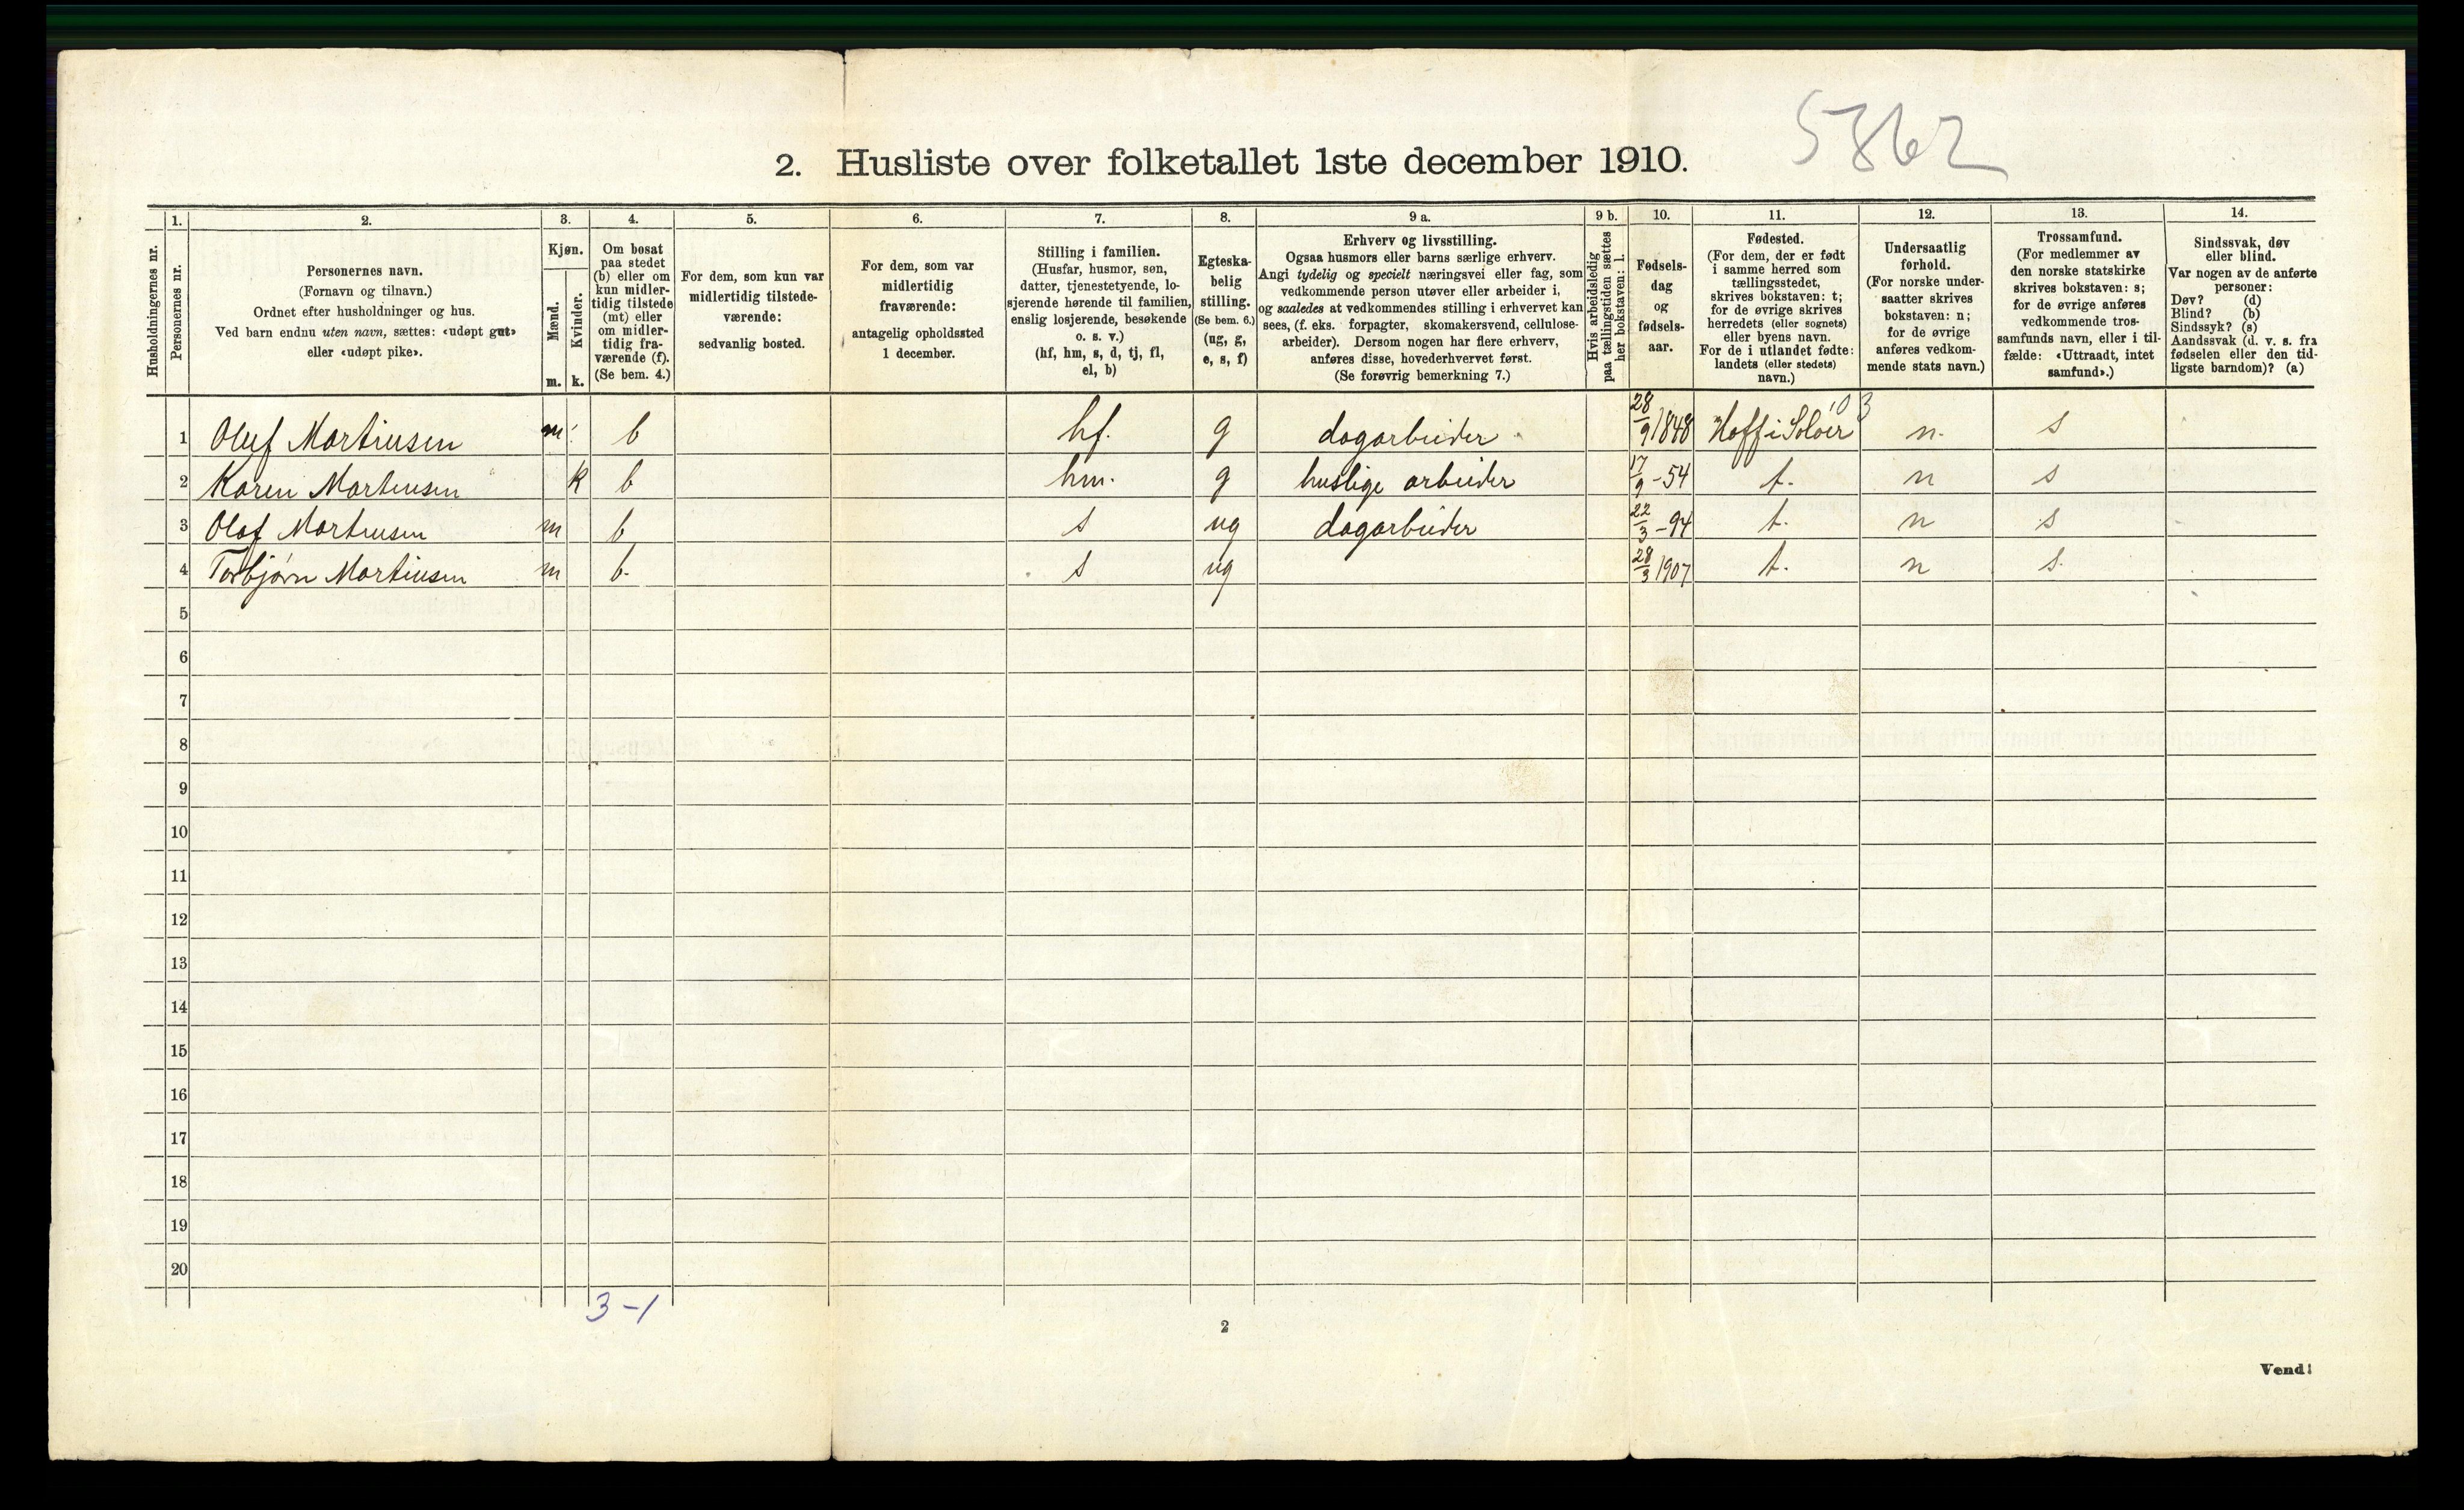 5362
2. Husliste over folketallet 1ste december 1910.
1. 2. 3. 4. 5. 6. 7. 8. 9 a. 9 b. 10. 11. 12. 13. 14.
Husholdningernes nr.
Personernes nr.
Personernes navn.
(Fornavn og tilnavn.)
Ordnet efter husholdninger og hus.
Ved barn endnu uten navn, sættes: «udøpt gut»
eller «udøpt pike».
Kjøn.
Mænd.
Kvinder.
m. k.
Om bosat
paa stedet
(b) eller om
kun midler-
tidig tilstede
(mt) eller
om midler-
tidig fra-
værende (f).
(Se bem. 4.)
For dem, som kun var
midlertidig tilstede-
værende:
sedvanlig bosted.
For dem, som var
midlertidig
fraværende:
antagelig opholdssted
1 december.
Stilling i familien.
(Husfar, husmor, søn,
datter, tjenestetyende, lo-
sjerende hørende til familien,
enslig losjerende, besøkende
o. s. v.)
(hf, hm, s, d, tj, fl,
el, b)
Egteska-
belig
stilling.
(Se bem. 6.)
(ug, g,
e, s, f)
Erhverv og livsstilling.
Ogsaa husmors eller barns særlige erhverv.
Angi tydelig og specielt næringsvei eller fag, som
vedkommende person utøver eller arbeider i,
og saaledes at vedkommendes stilling i erhvervet kan
sees, (f. eks. forpagter, skomakersvend, cellulose-
arbeider). Dersom nogen har flere erhverv,
anføres disse, hovederhvervet først.
(Se forøvrig bemerkning 7.)
Hvis arbeidsledig
paa tællingstiden sættes
her bokstaven: l.
Fødsels-
dag
og
fødsels-
aar.
Fødested.
(For dem, der er født
i samme herred som
tællingsstedet,
skrives bokstaven: t;
for de øvrige skrives
herredets (eller sognets)
eller byens navn.
For de i utlandet fødte:
landets (eller stedets)
navn.)
Undersaatlig
forhold.
(For norske under-
saatter skrives
bokstaven: n;
for de øvrige
anføres vedkom-
mende stats navn.)
Trossamfund.
(For medlemmer av
den norske statskirke
skrives bokstaven: s;
for de øvrige anføres
vedkommende tros-
samfunds navn, eller i til-
fælde: «Uttraadt, intet
samfund».)
Sindssvak, døv
eller blind.
Var nogen av de anførte
personer:
Døv? (d)
Blind? (b)
Sindssyk? (s)
Aandssvak (d. v. s. fra
fødselen eller den tid-
ligste barndom)? (a)
1 Oluf Martinsen m b hf. g dagarbeider 28/9 1848 Hoff i Soløer n. s
2 Karen Martinsen k b hm. g huslige arbeider 17/9 -54 t. n s
3 Olaf Martinsen m b s ug dagarbeider 22/3 -94 t. n s
4 Torbjørn Martinsen m b. s ug 28/3 1907 t. n s
5
6
7
8
9
10
11
12
13
14
15
16
17
18
19
20
3-1
2
Vend!